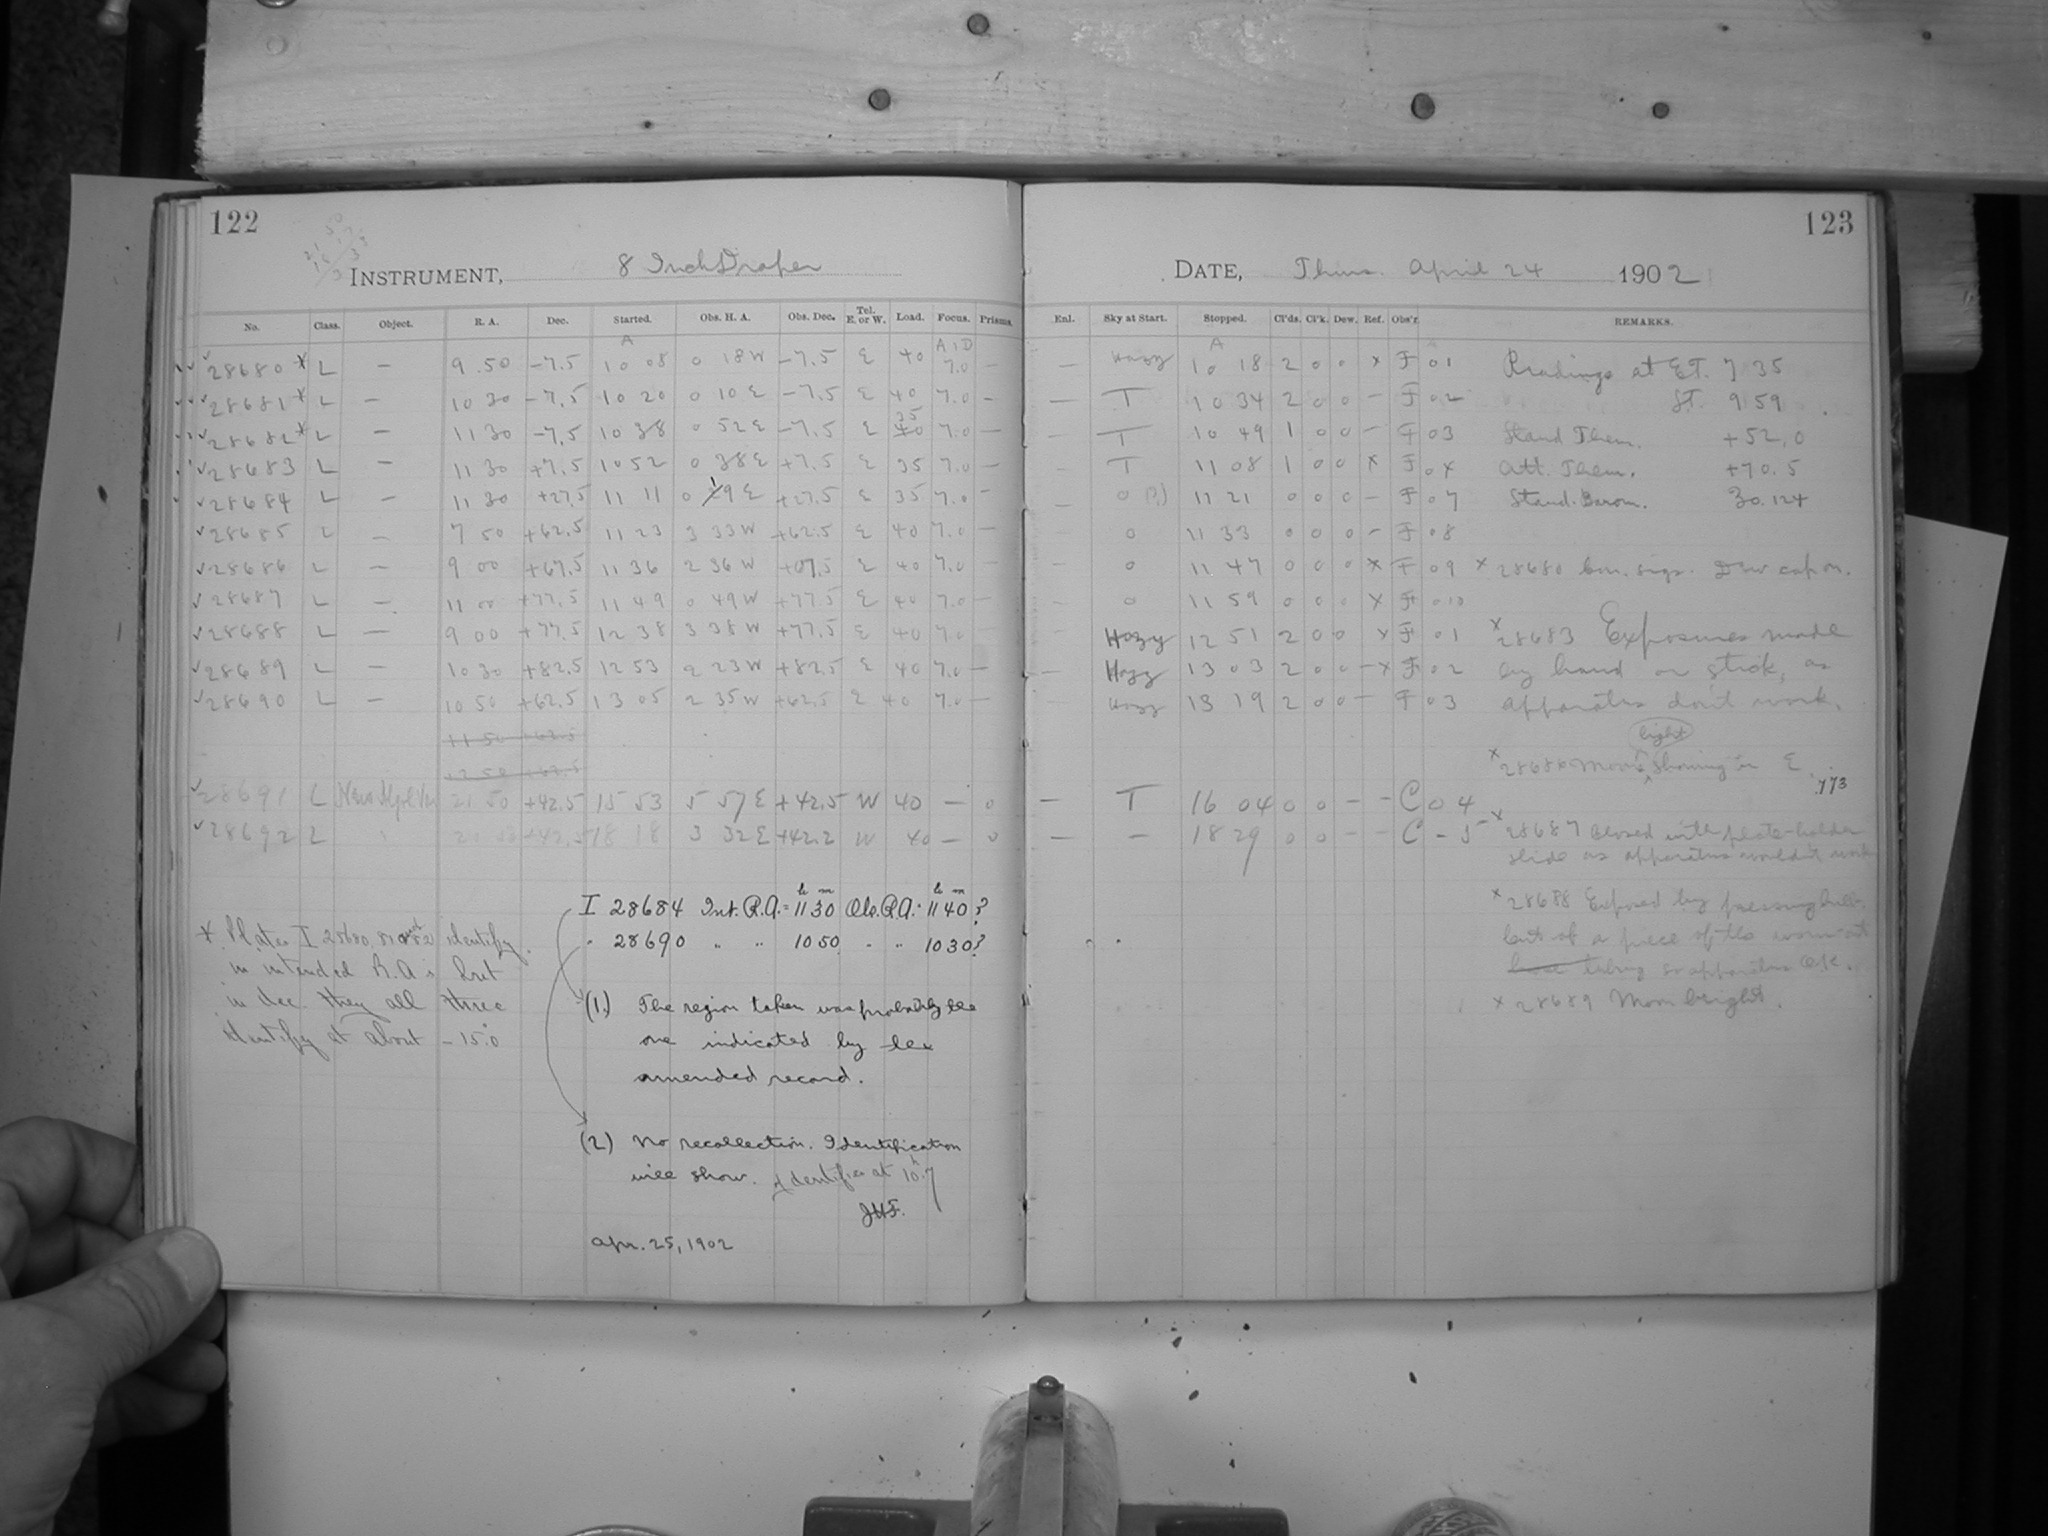 122
INSTRUMENT, 8 Inch Draper
No. Class. Object. R. A. Dec. Started. Obs. H. A. Obs. Dec. Tel. E. or W. Load. Focus. Prisms
28680* L — 9 50 −7.5 10 08 0 18 W −7.5 E 40 7.0 —
28681* L — 10 30 −7.5 10 20 0 10 E −7.5 E 40 7.0 —
28682* L — 11 30 −7.5 10 38 0 52 E −7.5 E 35 7.0 —
28683 L — 11 30 +7.5 10 52 0 38 E +7.5 E 35 7.0 —
28684 L — 11 30 +27.5 11 11 0 19 E +27.5 E 35 7.0 —
28685 L — 7 50 +62.5 11 23 3 33 W +62.5 E 40 7.0 —
28686 L — 9 00 +67.5 11 36 2 36 W +67.5 E 40 7.0 —
28687 L — 11 00 +77.5 11 49 0 49 W +77.5 E 40 7.0 —
28688 L — 9 00 +77.5 12 38 3 38 W +77.5 E 40 7.0
28689 L — 10 30 +82.5 12 53 2 23 W +82.5 E 40 7.0 —
28690 L — 10 50 +62.5 13 05 2 35 W +62.5 E 40 7.0 —
11 50 +62.5
12 50 +62.5
28691 L 21 50 +42.5 15 53 5 57 E +42.5 W 40 — 0
28692 L +42.5 18 18 3 32 E +42.2 W 40 — 0
I 28684 Int. R.A. = 11h 30m Obs. R.A. = 11h 40m?
" 28690 " " 10 50 " " 10 30?
* Plates I 28680, 81 and 82 identify
in intended R.A.s but
in dec. they all three
identify at about −15.°0
(1.) The region taken was probably the
one indicated by the
amended record.
(2) No recollection. Identification
will show. Identifies at 10h.7
JHF.
Apr. 25, 1902
123
DATE, Thurs. April 24 1902
Enl. Sky at Start. Stopped. Cl'ds. Cl'k. Dew. Ref. Obs'r. REMARKS.
— Hazy 10 18 2 0 0 x F 01
— T 10 34 2 0 0 — F 02
— T 10 49 1 0 0 — F 03
— T 11 08 1 0 0 x F 04
— 0 11 21 0 0 0 — F 07
— 0 11 33 0 0 0 — F 08
— 0 11 47 0 0 0 x F 09
— 0 11 59 0 0 0 x F 010
Hazy 12 51 2 0 0 x F 01
— Hazy 13 03 2 0 0 — x F 02
Hazy 13 19 2 0 0 — F 03
— T 16 04 0 0 — — C 04
— — 18 29 0 0 — — C – 5
Readings at E.T. 7 35
S.T. 9 59
Stand Therm. +52.0
Att. Therm. +70.5
Stand. Barom. 30.124
x 28680 Dew cap on.
x 28683 Exposures made
by hand on stick, as
apparatus don't work.
light
showing in E.
773
x 28687 Closed with plate-holder
slide as apparatus wouldn't work
x 28688 Exposed by pressing bulb
a piece of the
tubing so apparatus O.K.
x 28689 Moon bright.